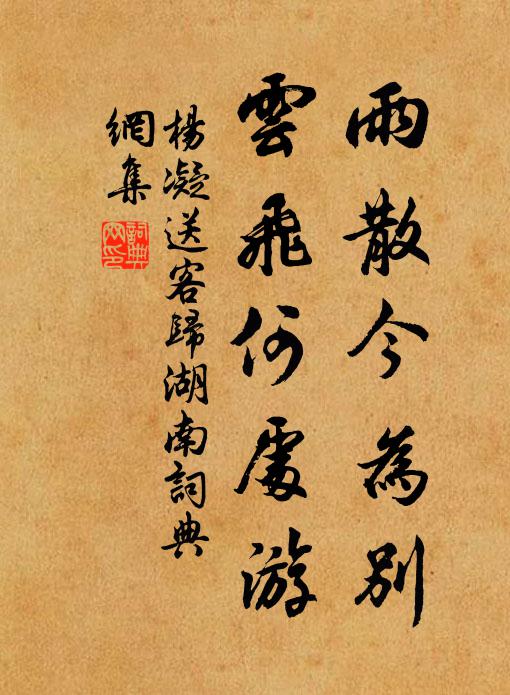 雨散今為別
雲飛何處游
楊凝送客歸湖南詞典
網集
詞典網印